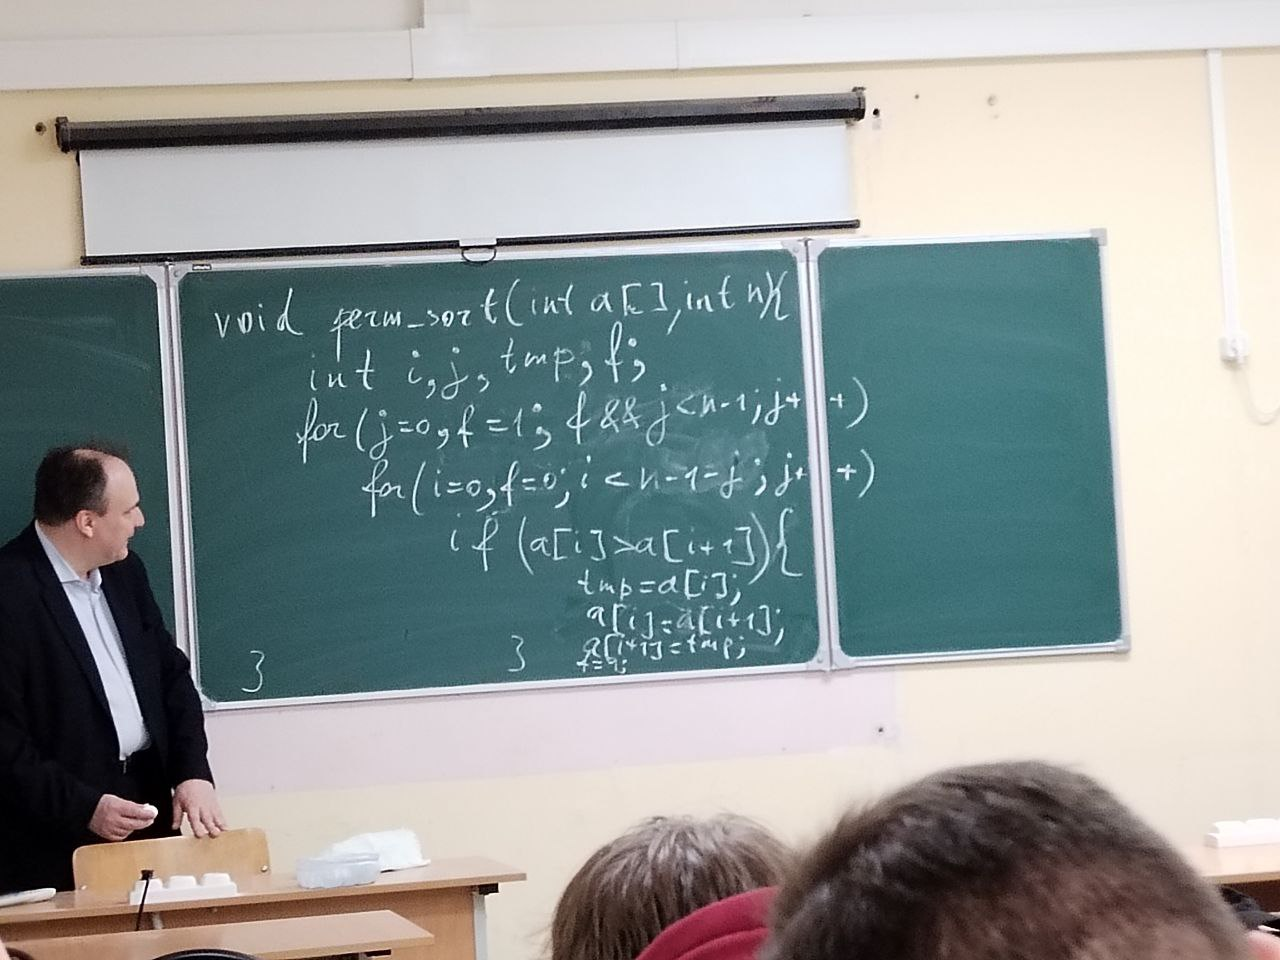 void perm_sort(int a[], int n){
int i,j, tmp; f;
for(j=0, f=1; f && j<n-1; j++)
for(i=0, f=0; i < n-1-j; j++)
if (a[i]>a[i+1]){
tmp=a[i];
a[i]=a[i+1];
a[i+1]=tmp;
}
}